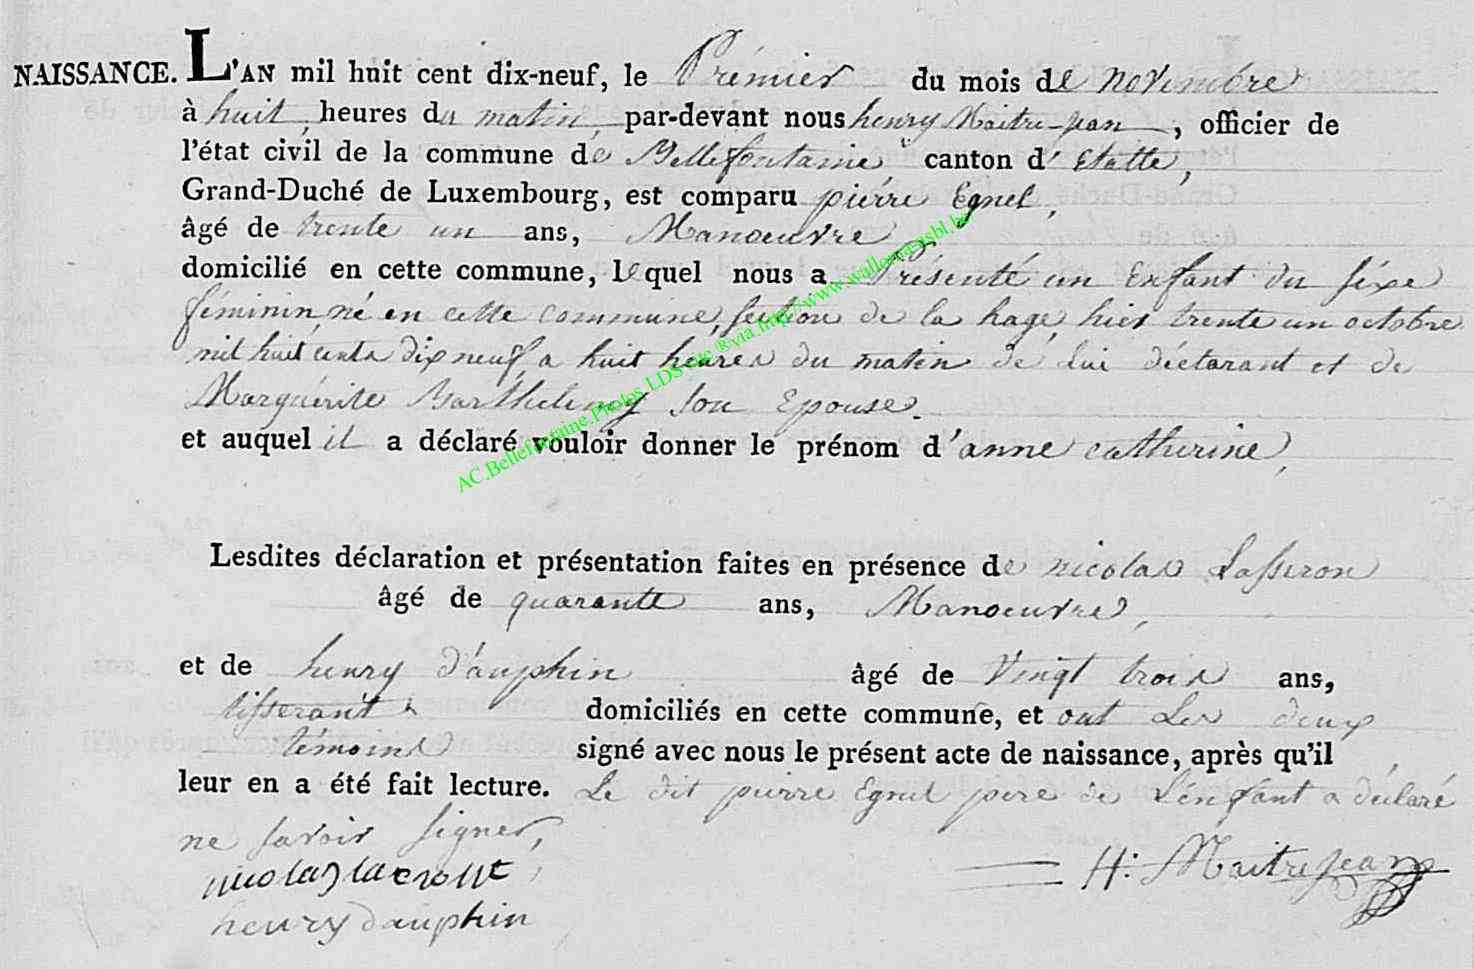 NAISSANCE. L'AN mil huit cent dix-neuf, le Prémier du mois de novembre
à huit heures du matin, par-devant nous henry Maitre-jean, officier de
l'état civil de la commune de Bellefontaine, canton d'Etalle,
Grand-Duché de Luxembourg, est comparu pierre Egnel,
âgé de trente un ans, Manoeuvre
domicilié en cette commune, lequel nous a Présenté un Enfant du séxe
féminin, né en cette commune, section de la hage, hier trente un octobre
mil huit cents dix neuf, a huit heures du matin de lui déclarant et de
Marguérite Barthelemy son Epouse.
et auquel il a déclaré vouloir donner le prénom d'anne catherine,
AC.Bellefontaine.Photos LDS etc ®via.http://www.wallonia-asbl.be
Lesdites déclaration et présentation faites en présence de nicolas
âgé de quarante ans, Manoeuvre,
et de henry D'auphin âgé de Vingt trois ans,
tisserant domiciliés en cette commune, et ont Les deux
témoins signé avec nous le présent acte de naissance, après qu'il
leur en a été fait lecture. Le dit pierre Egnel pere de L'énfant a déclaré
ne savoir signer,
nicolas
H: Maitrejean
henry dauphin